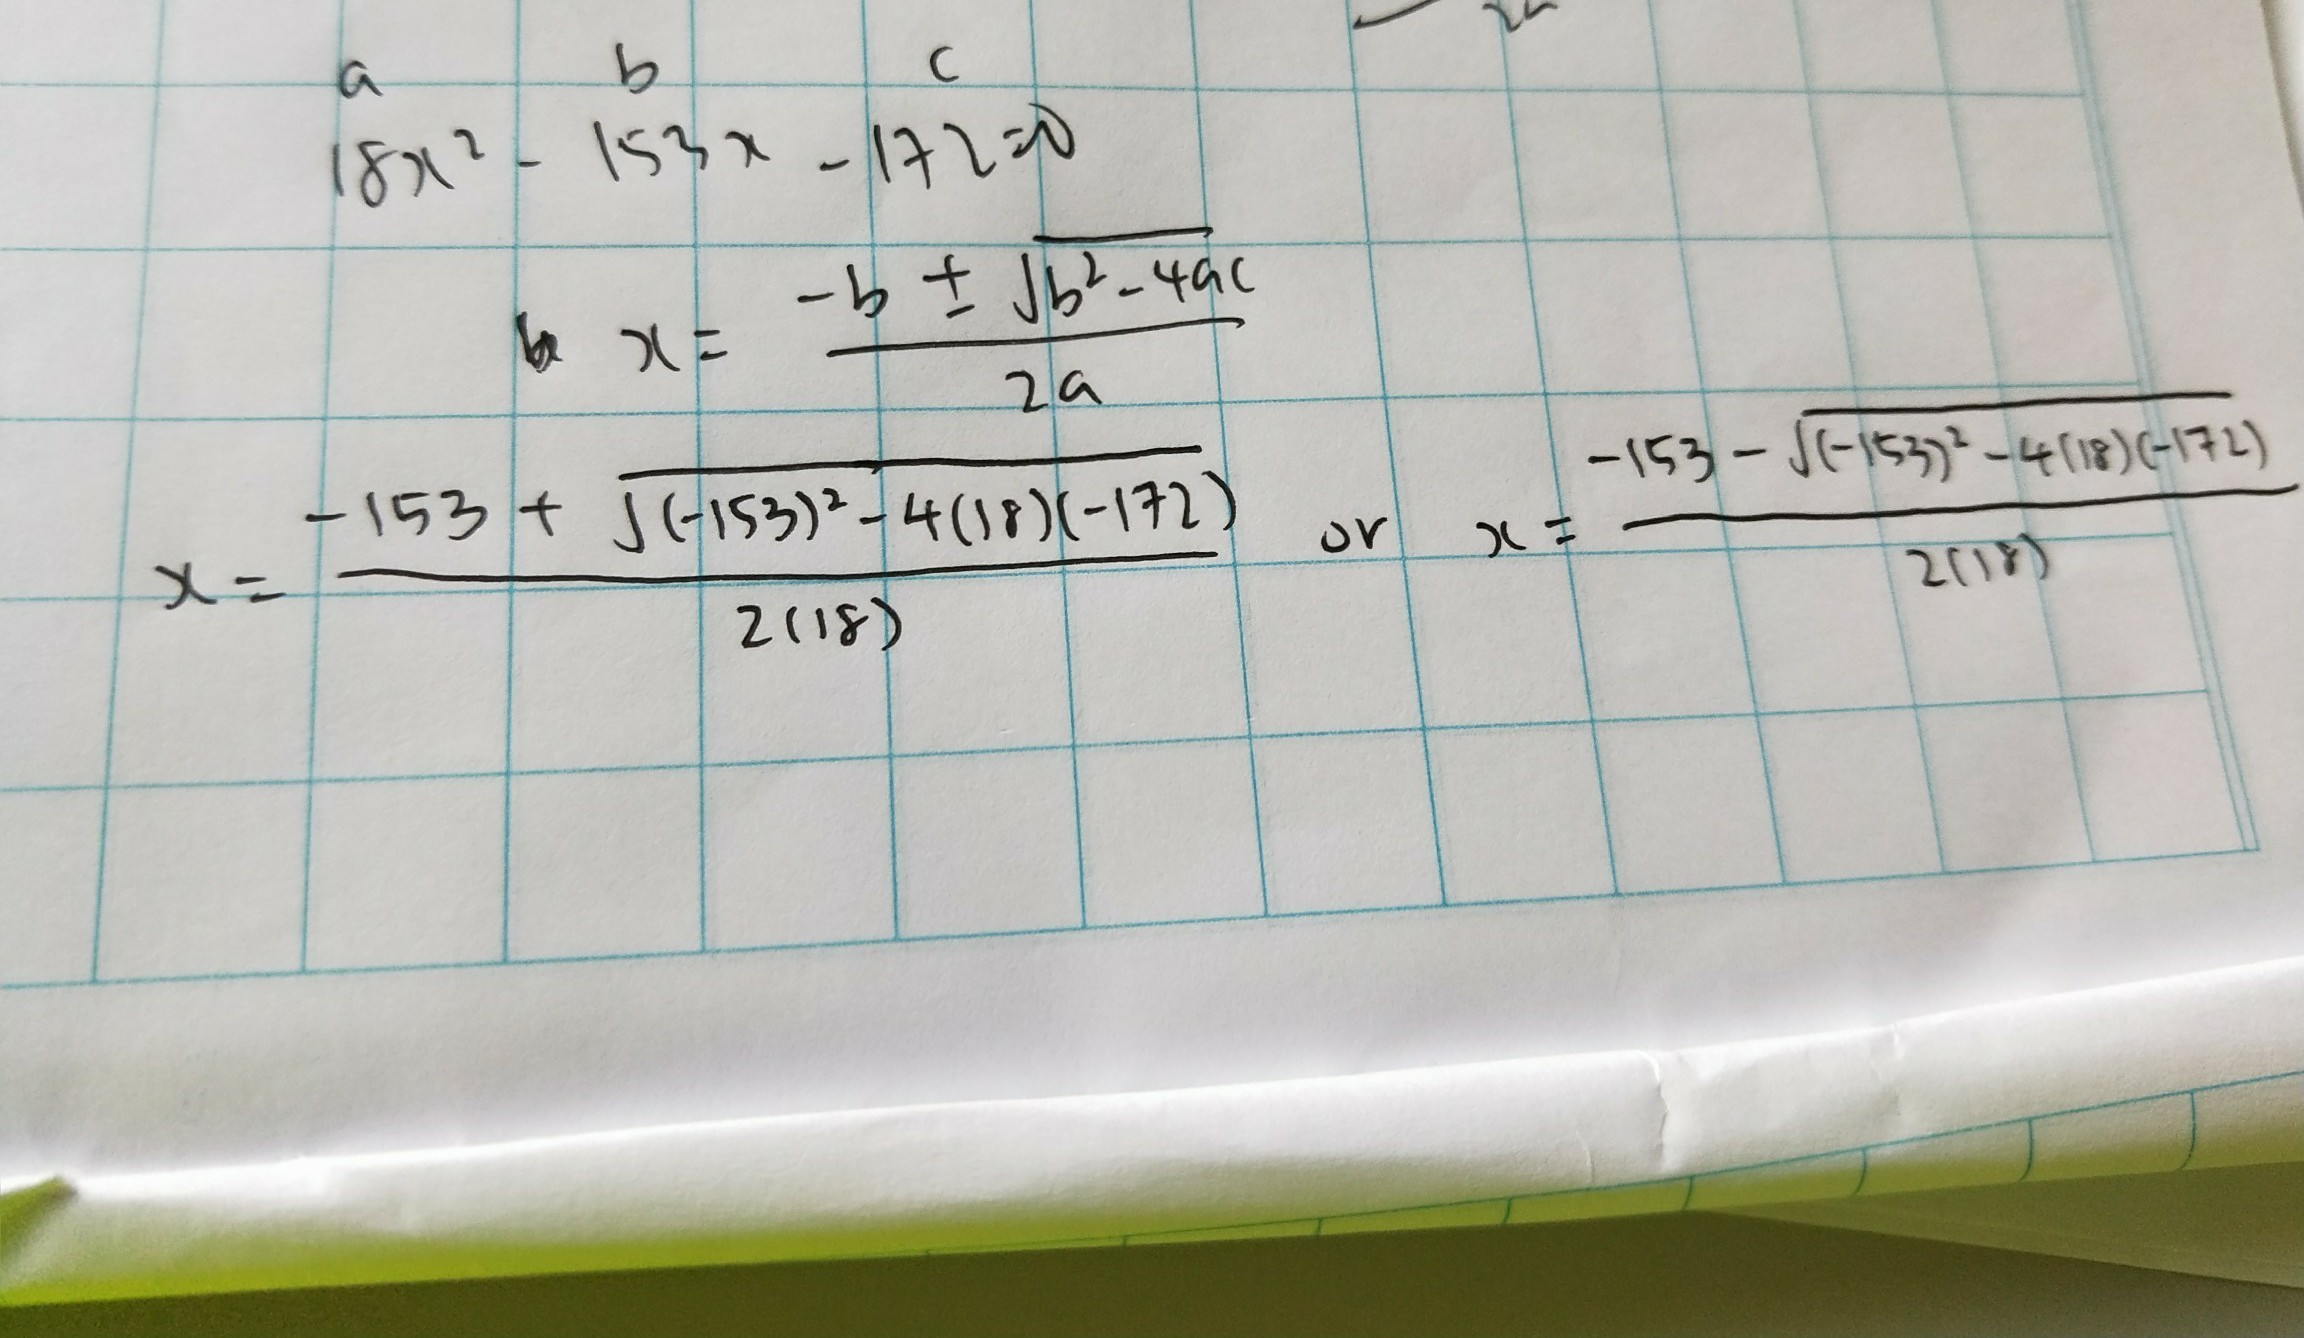 a b c
18x² - 153x - 172 = 0
x = (-b ± √(b² - 4ac)) / 2a
x = (-153 + √((-153)² - 4(18)(-172))) / 2(18) or x = (-153 - √((-153)² - 4(18)(-172))) / 2(18)